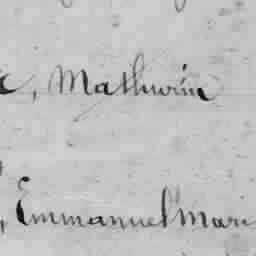 , Mathurin
, Emmanuel Mari